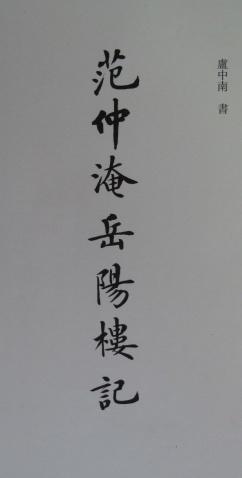 盧中南 書
范仲淹岳陽樓記